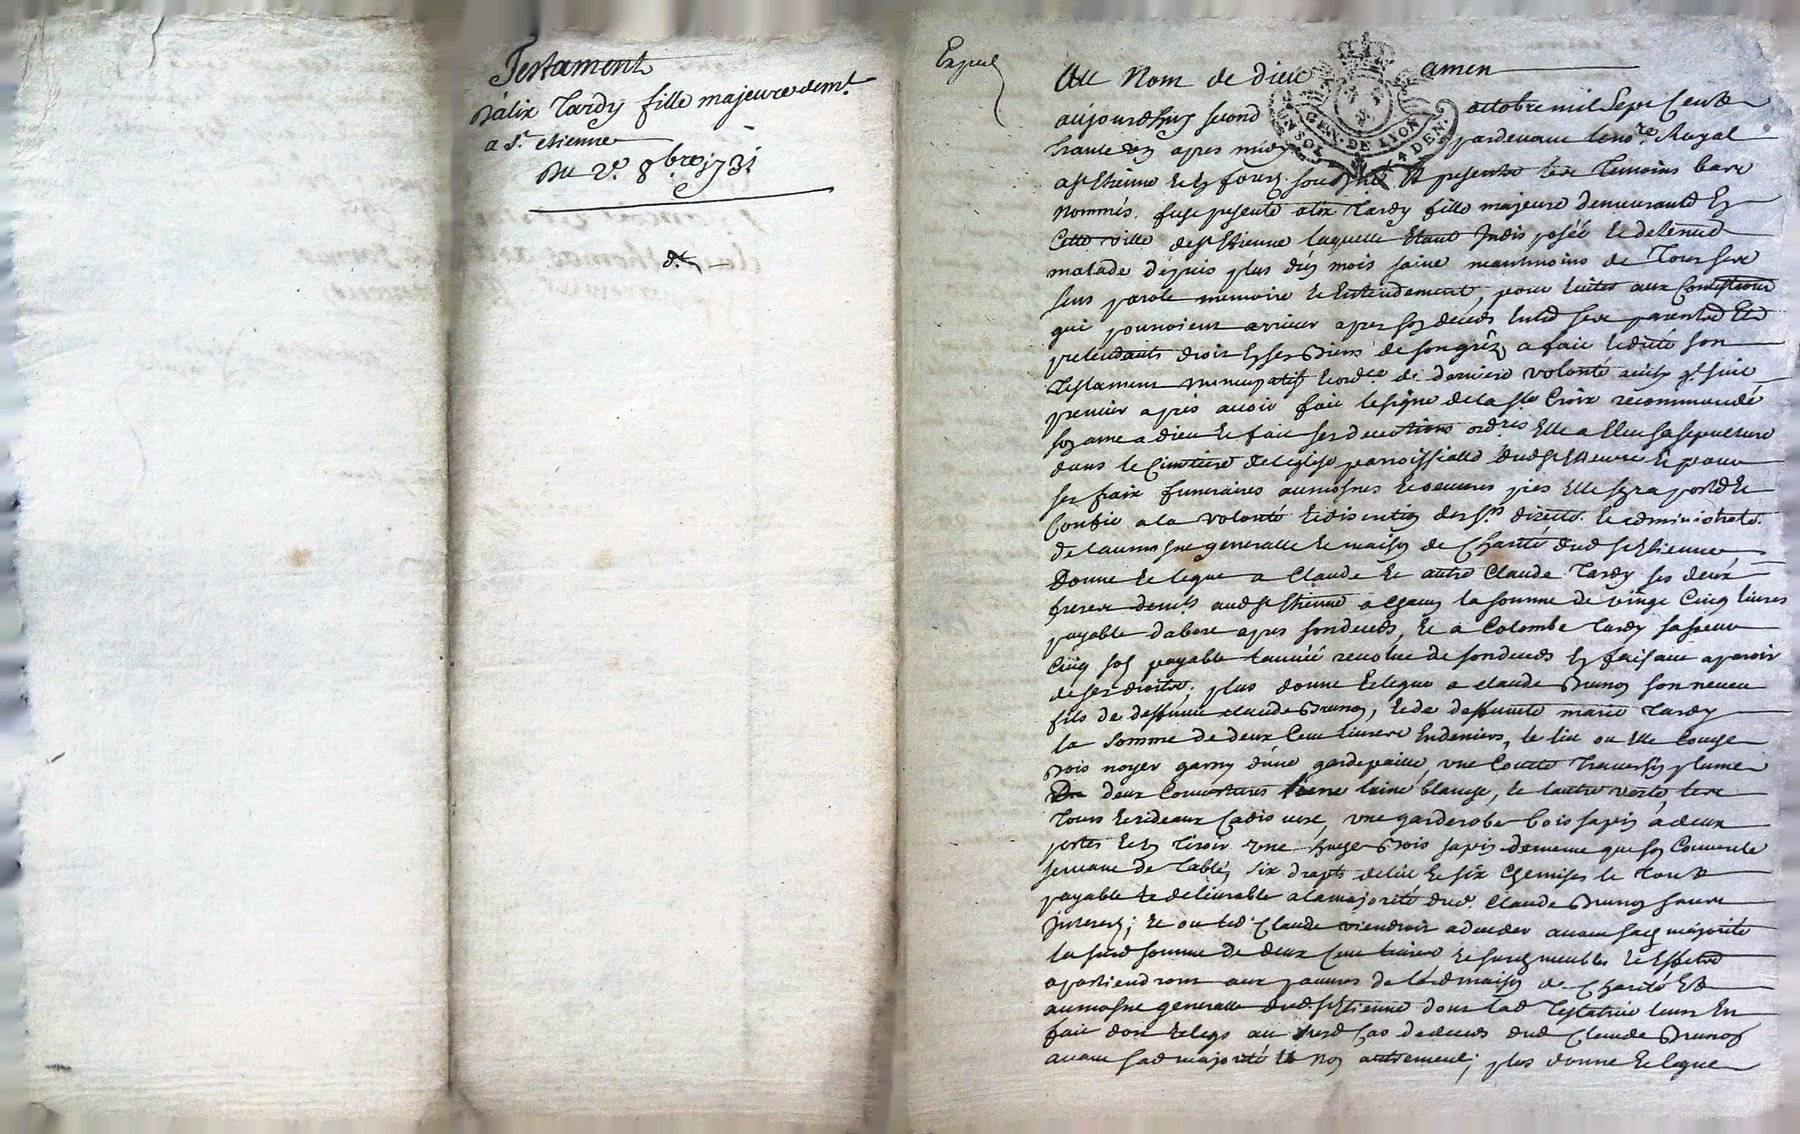 Testament
d'alix Tardy fille majeure demt.
a st. etienne
Du 2e. 8bre. 1731
Expedié
Au Nom de dieu amen
aujourdhuy second octobre mil sept cents
trante un apres midy pardevant le nore. Royal
a st Etienne et en forez soussigné et presents les Temoins bas
nommés, fust presente alix Tardy fille majeure demeurante en
Cette ville de st Etienne laquelle Etant Indisposée et detenue
malade depuis plus dun mois saine neantmoins de Tous ses
sens parole memoire et Entendement, pour Eviter aux Contestions
qui pourroient arriver apres son deceds Entre ses parents Et
pretendants droit En ses Biens de son gré a fait et dicté son
Testament nuncupatif et ordce. de derniere volonté ainsy q. suit
premier apres avoir fait le signe de la ste. Croix recommandé
son ame a dieu et fait ses devotions ordres Elle a Eleu sa sepulture
dans le Cimetiere de l'eglise parroissialle dud st Etienne Et pour
ses fraix funeraires aumosnes et oeuvres pies Elle s'en raporte Et
Confie a la volonté et discretion des srs. directrs. et administratrs.
de l'aumosne generalle et maison de Charité dud st Etienne
Donne Et legue a Claude Et autre Claude Tardy ses deux
freres demts. aud st Etienne a Chacun la somme de vingt Cinq livres
payable dabort apres son deceds, Et a Colombe Tardy sa soeur
Cinq sols payable l'année revolue de son deceds En faisant aparoir
de ses droits, plus donne Et legue a Claude Brunon son neveu
fils de deffunt Claude Brunon, Et de deffunte marie Tardy
la somme de deux Cent livres En deniers, le lit ou Elle Couche
Bois noyer garny d'une gardepaille, une Coutte Traversin plume
deux Couvertures l'une laine blanche, Et lautre verte, les
Tours Et rideaux Cadis vert, une garderobe bois sapin a deux
portes Et un Tiroir une huche Bois sapin de meme que son Couvercle
servant de Table, six draps de lit Et six Chemises le Tout
payable Et delivrable a la majorité dud. Claude Brunon sans
Interest; Et ou led Claude viendroit a deceder avant sad majorité
la susd somme de deux Cent livres Et susd meubles Et Effets
apartiendront aux pauvres de lad maison de Charité Et
aumosne generalle dud st Etienne dont lad Testatrice leurs En
fait don Et legs au susd Cas de deceds dud Claude Brunon
avant sad majorité Et non autrement; plus donne Et legue